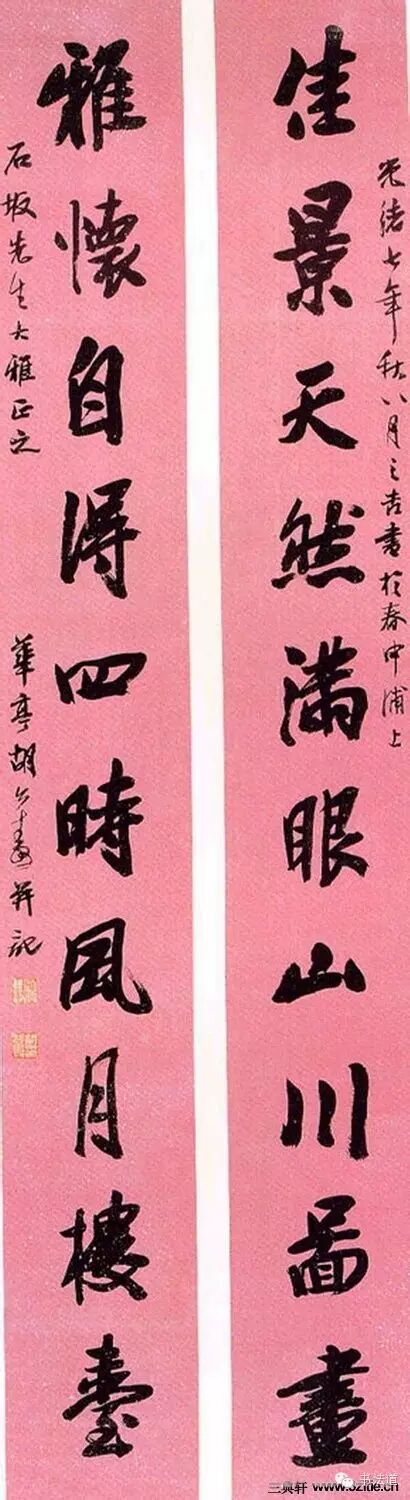 光緒七年秋八月之吉書於春申浦上
佳景天然滿眼山川圖畫
雅懷自得四時風月樓臺
石坂先生大雅正之
華亭胡公壽并記
三典轩 www.3zitie.cn
书法道